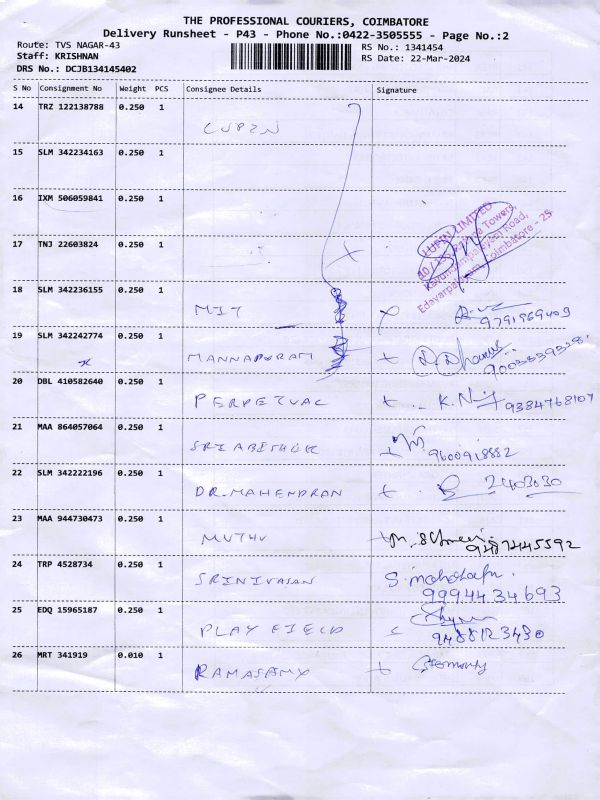 THE PROFESSIONAL COURIERS, COIMBATORE
Delivery Runsheet - P43 - Phone No.:0422-3505555 - Page No.:2
Route: TVS NAGAR-43 RS No.: 1341454
Staff: KRISHNAN RS Date: 22-Mar-2024
DRS No.: DCJB134145402
S No Consignment No Weight PCS Consignee Details Signature
14 TRZ 122138788 0.250 1
LUPIN
15 SLM 342234163 0.250 1
16 IXM 506059841 0.250 1
LUPIN LIMITED
Edayarpalayam, Coimbatore - 25.
17 TNJ 22603824 0.250 1
18 SLM 342236155 0.250 1
MIT 9791969403
19 SLM 342242774 0.250 1
MANNAPURAM
20 DBL 410582640 0.250 1
PERPETUAL 9384768107
21 MAA 864057064 0.250 1
9600918882
22 SLM 342222196 0.250 1
DR.MAHENDRAN
23 MAA 944730473 0.250 1
MUTHU
24 TRP 4528734 0.250 1
SRINIVASAN
9994434693
25 EDQ 15965187 0.250 1
PLAY FIELD 9488123430
26 MRT 341919 0.010 1
RAMASAMY